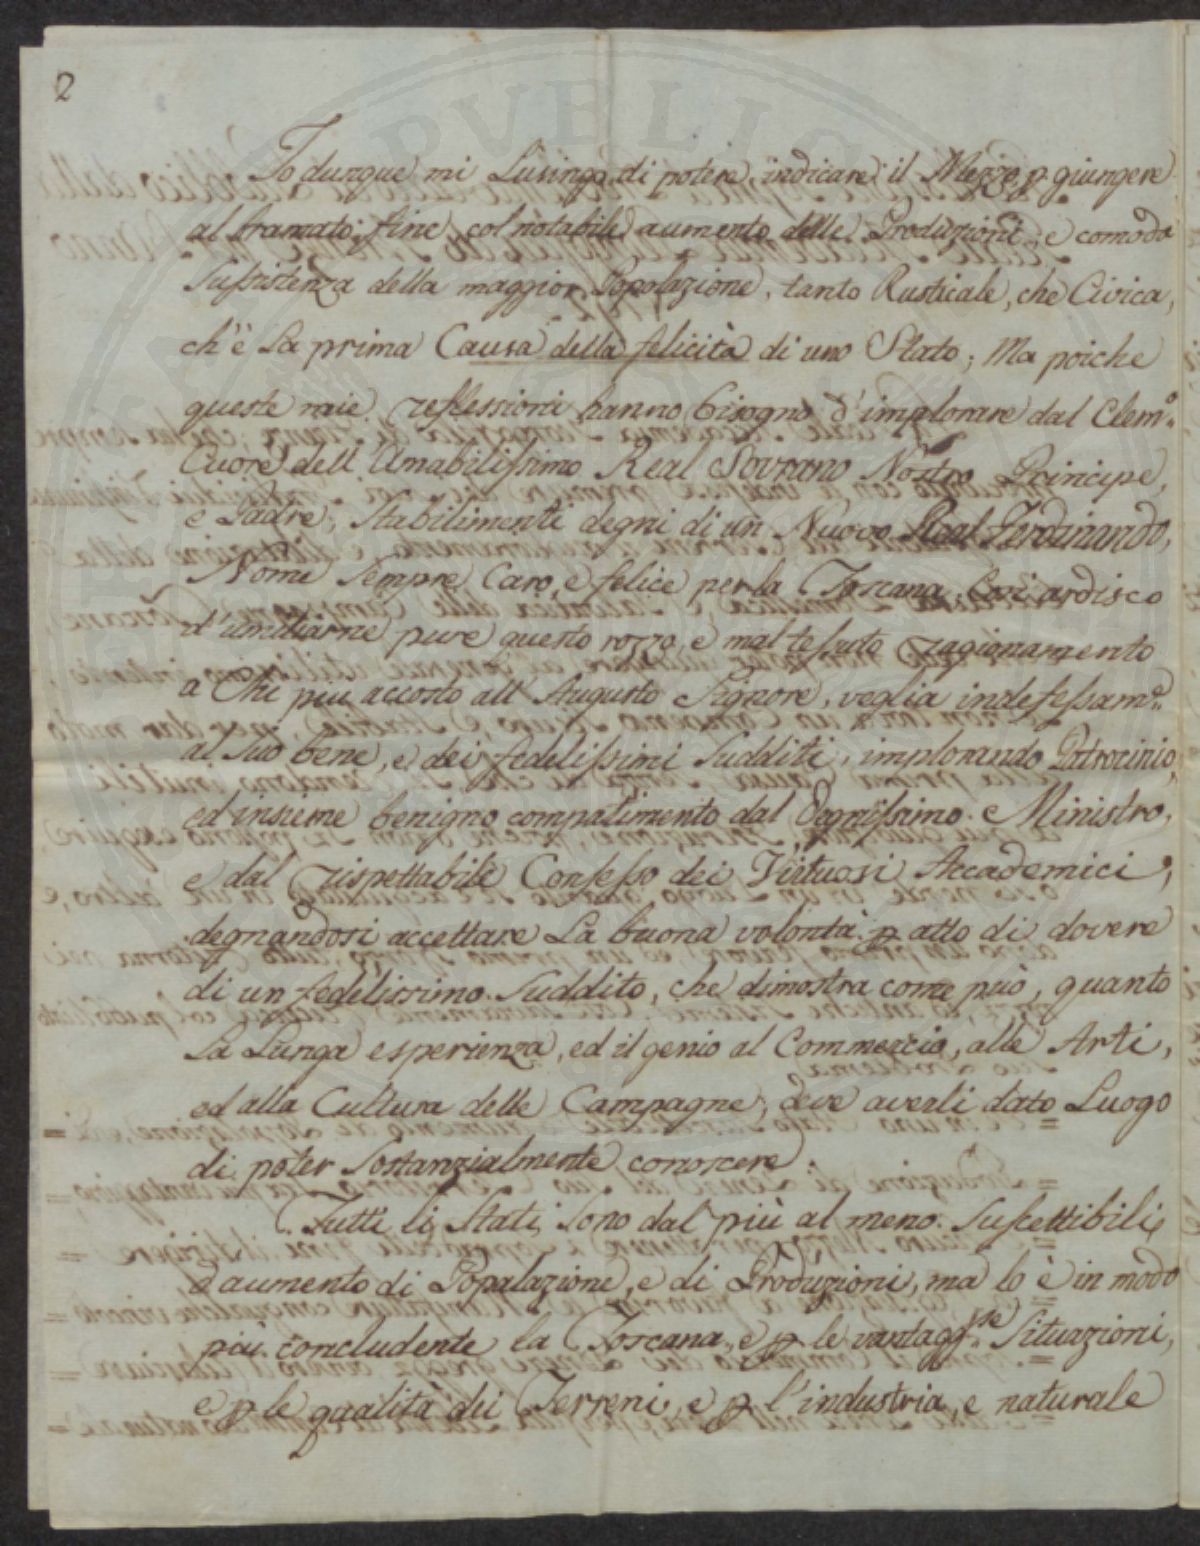 2
Io dunque mi Lusingo di potere indicare il Mezzo p. giungere
al bramato fine col notabile aumento delle Produzioni, e comoda
Sussistenza della maggior Popolazione, tanto Rusticale, che Civica,
ch'è La prima Causa della felicità di uno Stato; Ma poiche
queste mie reflessioni hanno bisogno d'implorare dal Clem.o
Cuore dell'Amabilissimo Real Sovrano Nostro Principe,
e Padre, Stabilimenti degni di un Nuovo Real Ferdinando,
Nome sempre Caro, e felice per la Toscana, Così ardisco
d'umiliarne pure questo rozzo, e mal tessuto ragionamento
a Chi piu accosto all'Augusto Signore, veglia indefessam.e
al Suo bene, e dei fedelissimi Sudditi, implorando Patrocinio,
ed insieme benigno compatimento dal Degnissimo Ministro,
e dal rispettabile Consesso dei Virtuosi Accademici,
degnandosi accettare La buona volontà p. atto di dovere
di un fedelissimo Suddito, che dimostra come può, quanto
La Lunga esperienza, ed il genio al Commercio, alle Arti,
ed alla Cultura delle Campagne, deve averli dato Luogo
di poter Sostanzialmente conoscere.
Tutti li Stati Sono dal più al meno Suscettibili
d'aumento di Popalazione, e di Produzioni, ma lo è in modo
più concludente la Toscana, e p. le vantagg.se Situazioni,
e p. le qualità dei Terreni, e p. l'industria, e naturale
PVBLIC